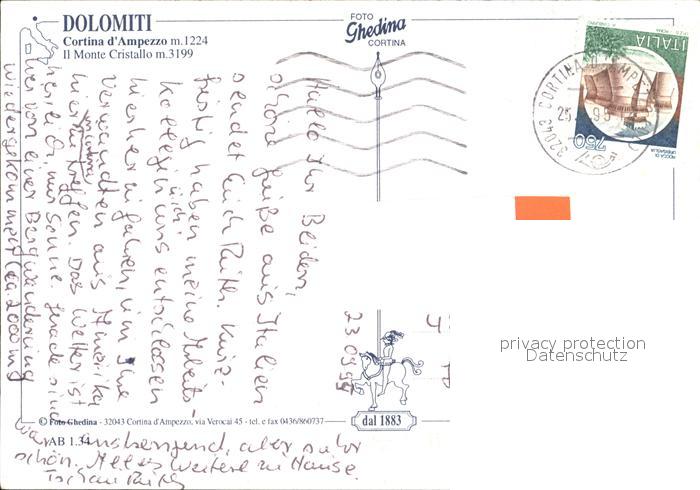 DOLOMITI
Cortina d'Ampezzo m.1224
Il Monte Cristallo m.3199
FOTO
Ghedina
CORTINA
ITALIA
750
32043 CORTINA D'AMPEZZO
Hallo Ihr Beiden,
schöne Grüße aus Italien
sendet Euch Ruth. Kurz-
fristig haben meine Arbeits-
kollegin u. ich uns entschlossen
hierher zu fahren, um Ihre
Verwandten aus Amerika
hier zu treffen. Das Wetter ist
herrlich, nur Sonne. Gerade sind
wir von einer Bergwanderung
wiedergekommen (ca. 2000 m)
war anstrengend, aber sehr
schön. Alles weitere zu Hause.
Tschau Ruth
23.09.95
© Foto Ghedina - 32043 Cortina d'Ampezzo, via Verocai 45 - tel. e fax 0436/860737
AB 1.34
dal 1883
privacy protection
Datenschutz